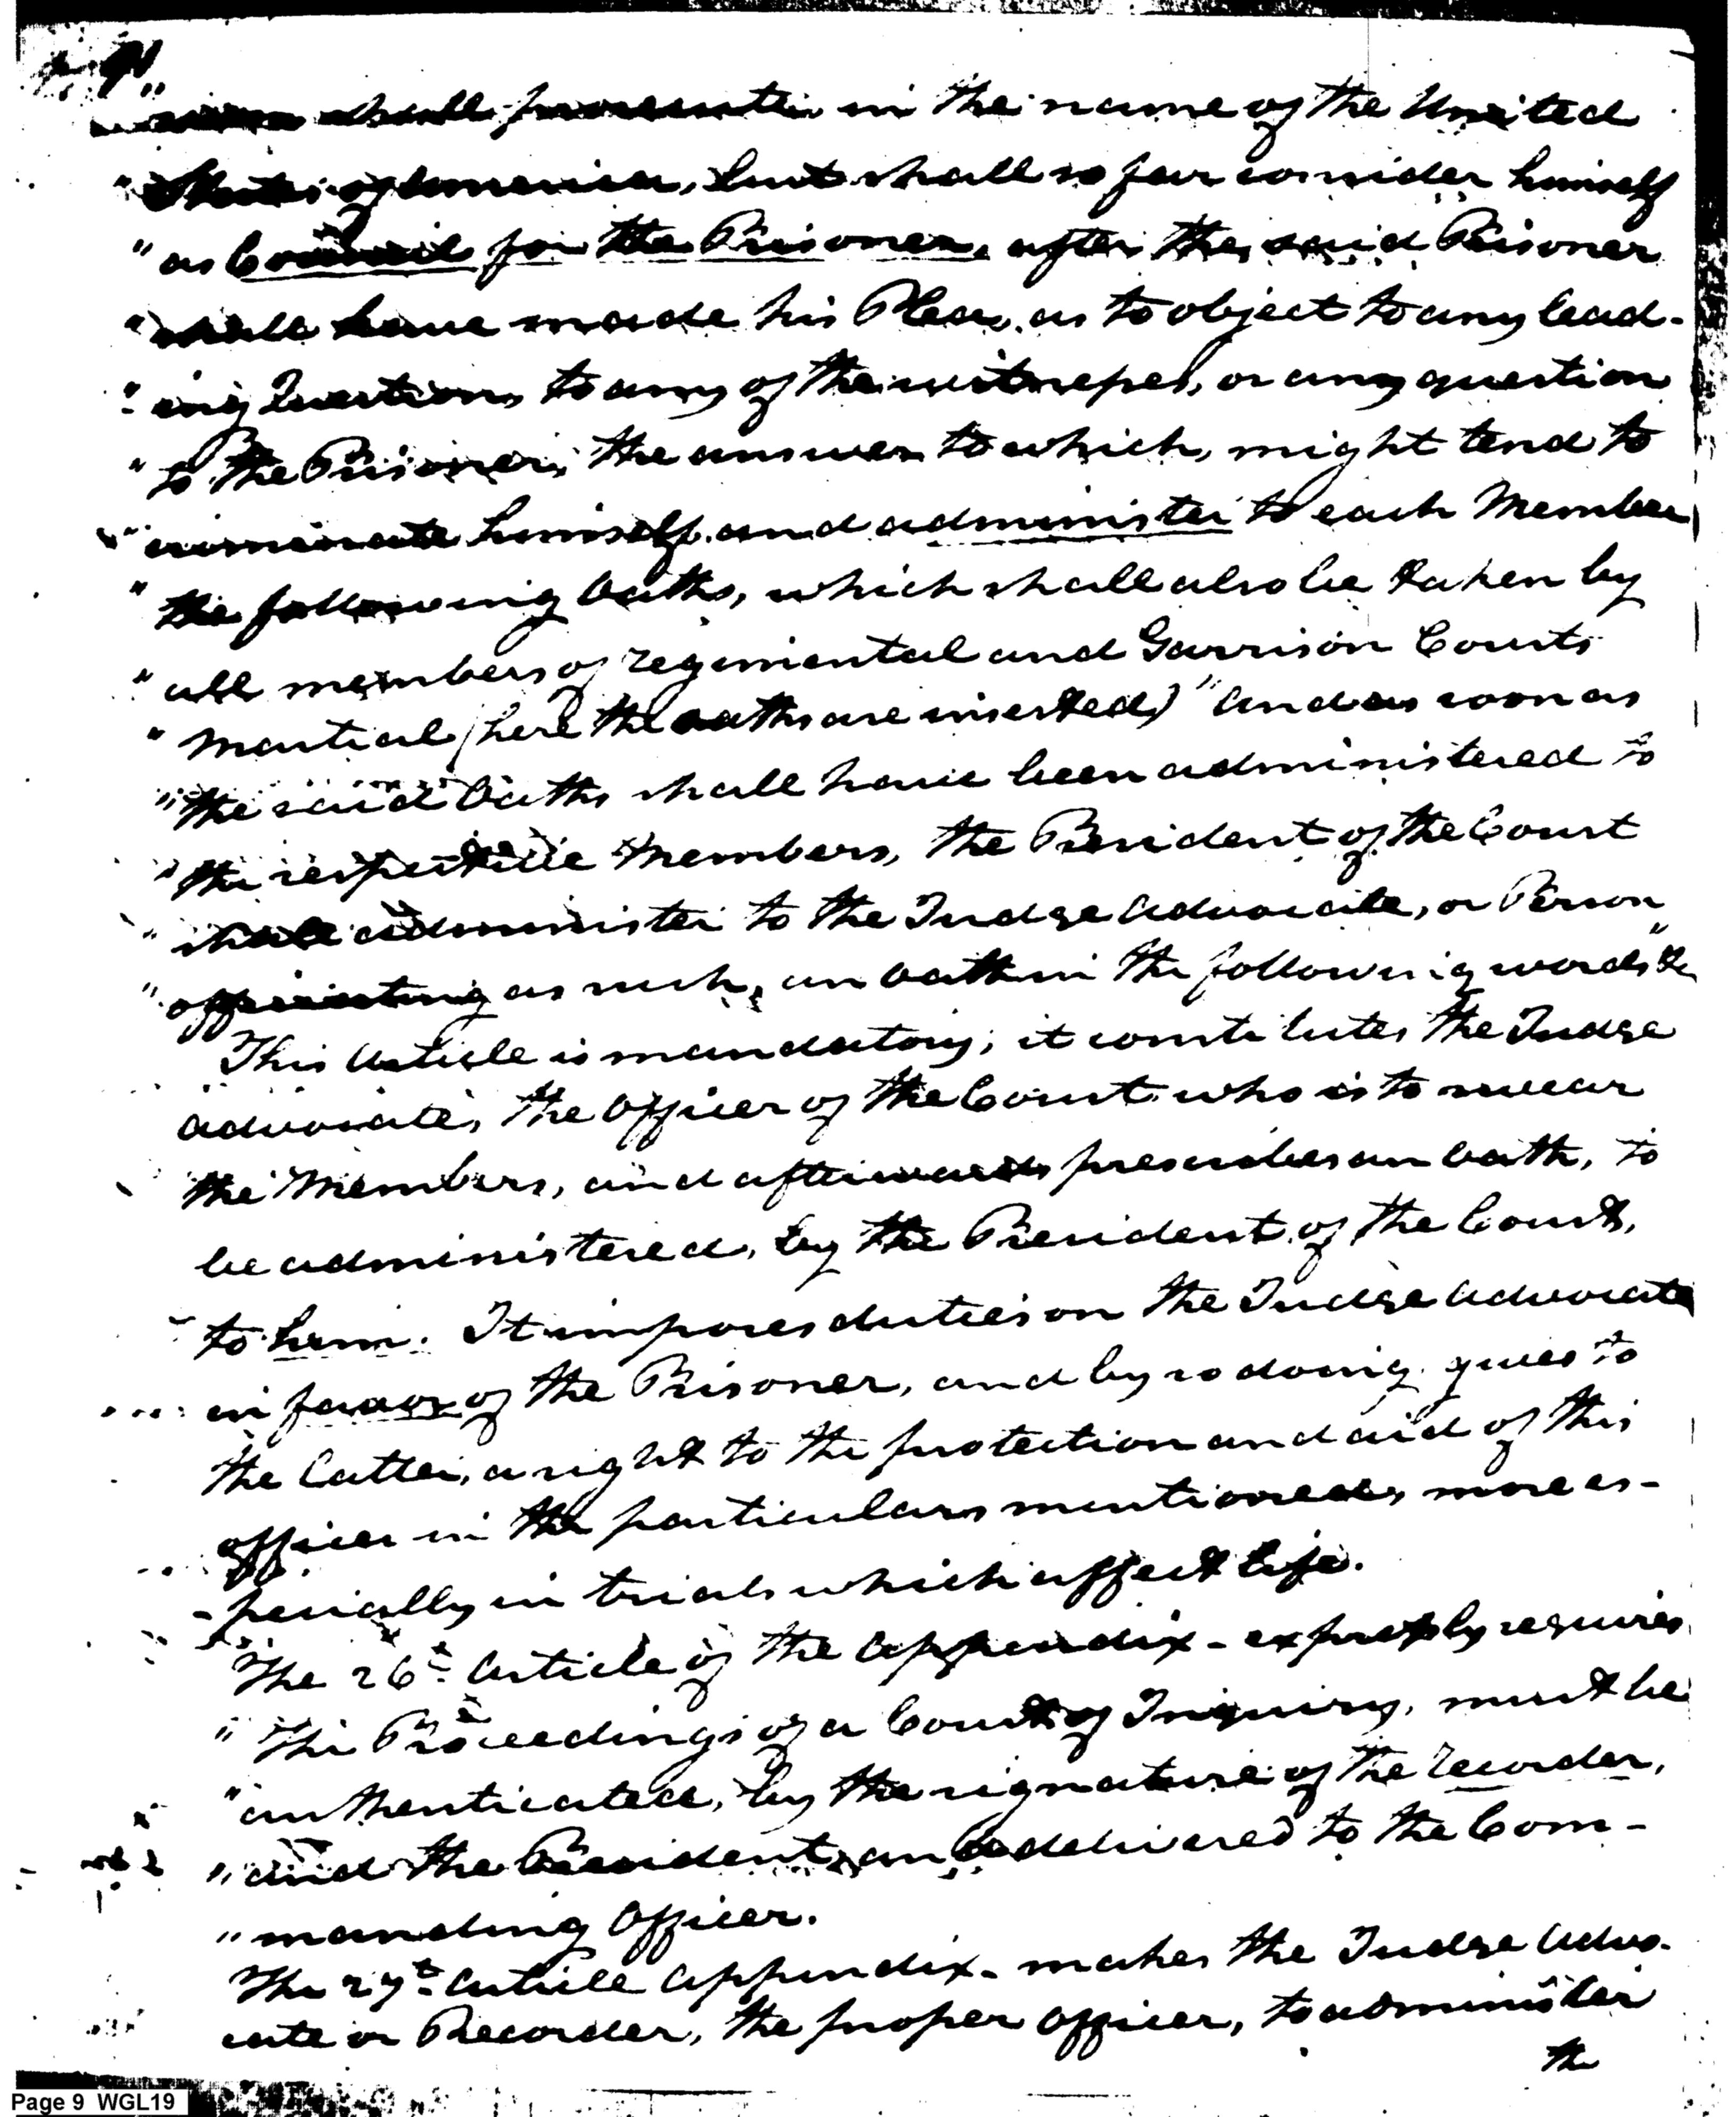 " shall prosecute in the name of the United
" States of America, but shall so far consider himself
" as Council for the Prisoner, after the said Prisoner
" shall have made his Plea, as to object to any lead-
" ing Question, to any of the witnesses, or any question
" to the Prisoner, the answer to which, might tend to
" criminate himself, and administer to each Member
" the following Oaths, which shall also be taken by
" all members of regimental and Garrison Courts
" Martial (here the oaths are inserted) " And as soon as
" the said Oaths shall have been administered to
" the respective Members, the President of the Court
" shall administer to the Judge Advocate, or Person
" officiating as such, an oath in the following words" &c
This Article is mandatory; it constitutes the Judge
Advocate, the Officer of the Court who is to swear
the Members, and afterwards prescribes an Oath, to
be administered, by the President of the Court,
to him. It imposes duties on the Judge Advocate
in favor of the Prisoner, and by so doing gives to
the latter, a right to the protection and aid of this
officer in the particulars mentioned, more es-
-pecially in trials which affect life.
The 26th Article of the Appendix - expressly requires
" The Proceedings of a Court of Inquiry, must be
" authenticated, by the signature of the recorder,
" and the President, and delivered to the Com-
" manding Officer.
The 27th Article Appendix - makes the Judge Advo-
cate or Recorder, the proper Officer, to administer
th
Page 9 WGL19